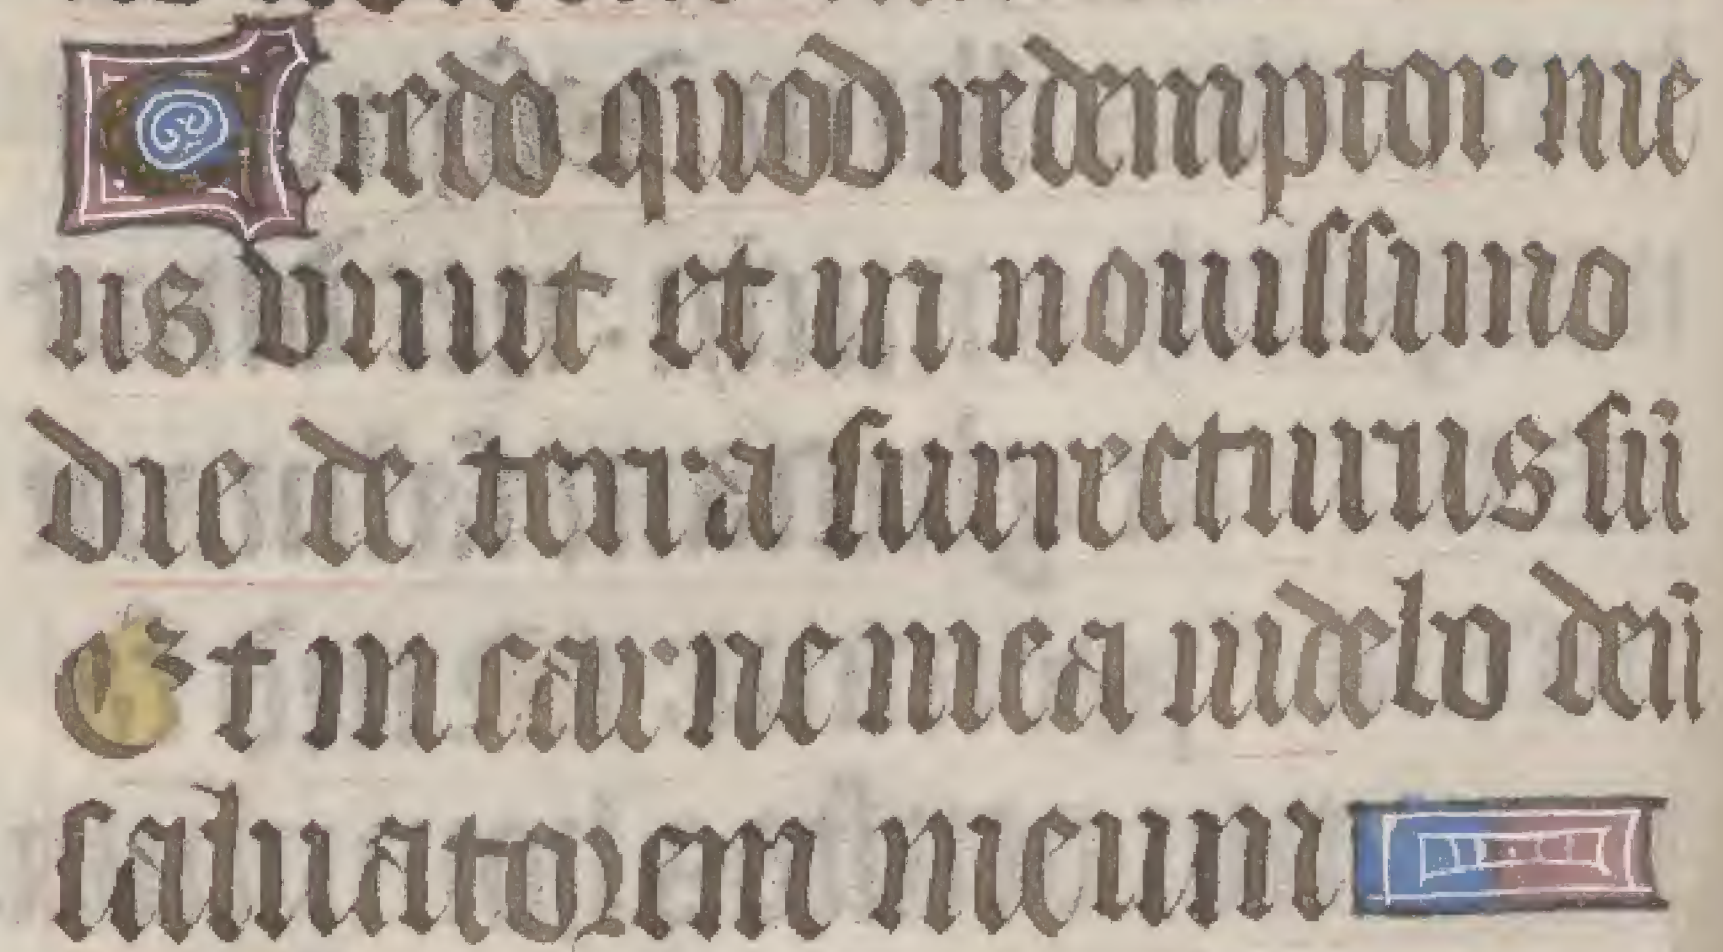 Credo quod redemptor me
us viuit et in nouissimo
die de terra surrecturus sū
Et in carne mea uidebo deū
saluatorem meum